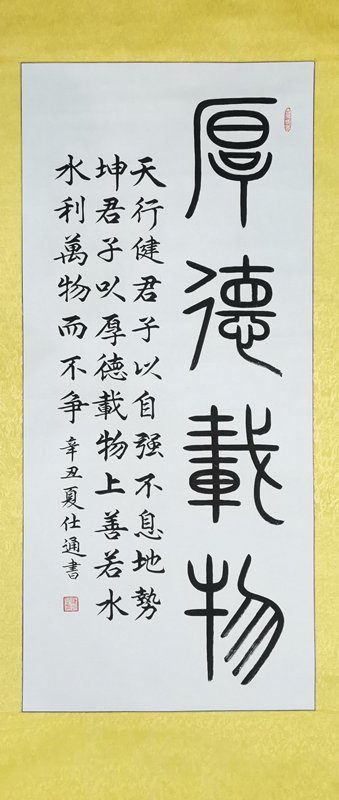 厚德載物
天行健君子以自强不息地勢
坤君子以厚德載物上善若水
水利萬物而不争
辛丑夏仕通書